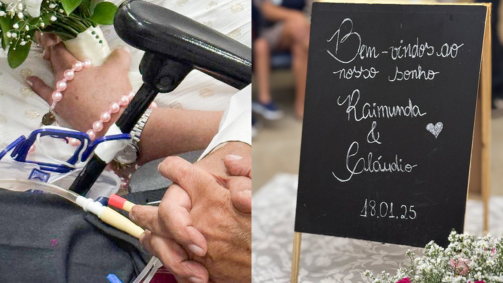 Bem-vindos ao
nosso sonho
Raimunda
&
Cláudio
18.01.25